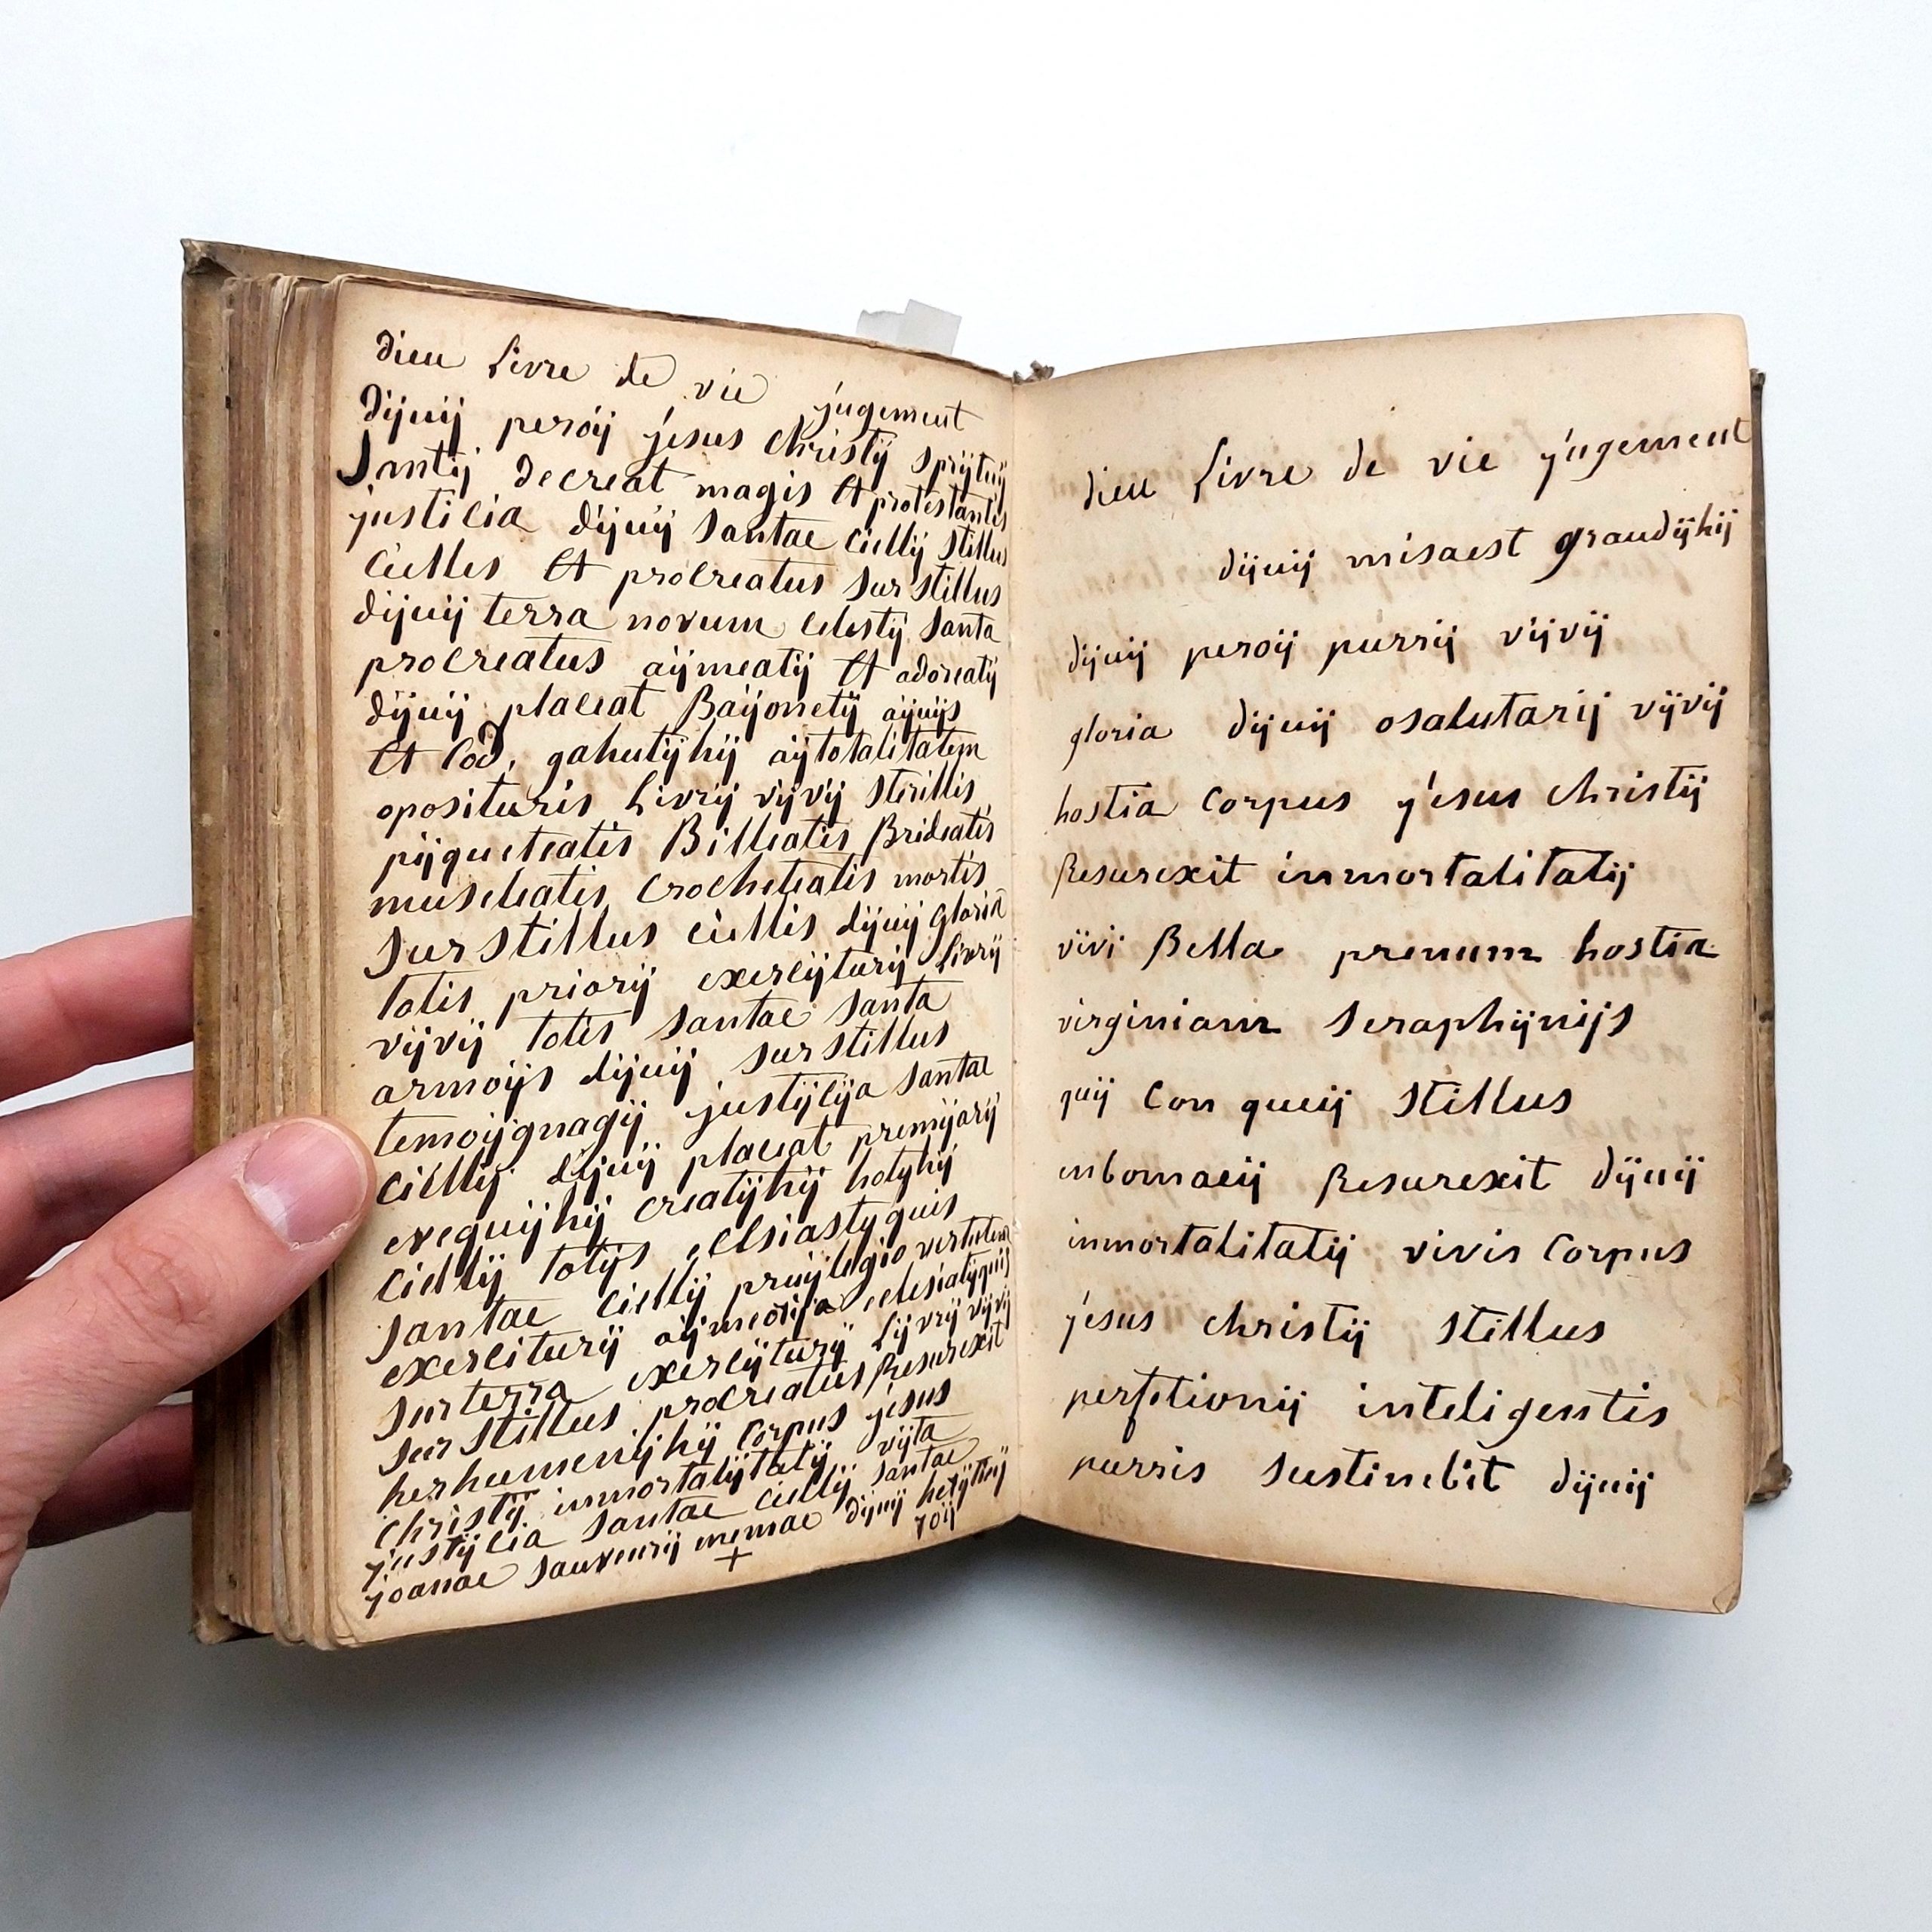 dieu Livre de vie jugement
dijuij peroij jesus christij sprijtuij
Santij decreat magis et protestantis
justicia dijuij Santae ciellij stillus
ciellis et procreatus sur stillus
dijuij terra novum celestij Santa
procreatus aijmeatij et adoreatij
dijuij placeat Baijonetij aijuijs
et Cod, gahutijhij aijtotalitatem
oposituris Livrij vijvij sterillis
pijqueteatis Billeatis Brideatis
museleatis Crocheteatis mortis
sur stillus ciellis dijuij gloria
totis priorij exercijturij Livrij
vijvij totis Santae Santa
armoijs dijuij sur stillus
temoijgnagij justijcija Santae
ciellij dijuij placeat premijorij
evequijhij creatijhij hotijhij
ciellij totijs eclsiastyquis
Santae ciellij pruijlegio vertutem
exerciturij aijmeorija eclesiatijquij
sur terra exercijturij Lijvrij vijvij
sur stillus procreatus Resurexit
herhumenijhij Corpus jesus
christij immortalijtatij vijta
justijcia Santae ciellij Santae
joanae sauveurij memae dijuij hetijtuij
+ roij
dieu Livre de vie jugement
dijuij misaest graudijhij
dijuij peroij purrij vijvij
gloria dijuij osalutarij vijvij
hostia Corpus jesus christij
Resurexit immortalitatij
vivi Bella prenum hostia
virginiam Seraphijnijs
quij Con queij stillus
inbomaeij Resurexit dijuij
immortalitatij vivis Corpus
jesus christij stillus
perfetionij inteligentis
purris sustinebit dijuij